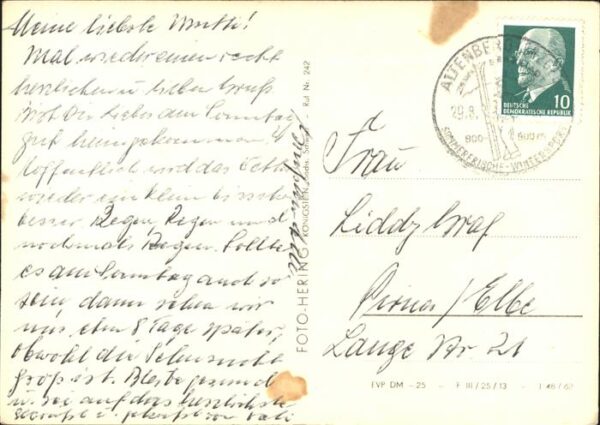 Meine liebste Mutti!
Mal wieder einen recht
herzlichen u. lieben Gruß
Bist Du Liebes den Sonntag
gut heimgekommen?
Hoffentlich wird das Wetter
wieder ein klein bisschen
besser. Regen, Regen und
nochmals Regen. Sollte
es am Sonntag auch so
sein, dann sehen wir
uns eben 8 Tage später,
obwohl die Sehnsucht
groß ist. Bleibe gesund
u. sei auf das herzlichste
gegrüßt u. geküsst von
FOTO-HERING KÖNIGSTEIN
R.I Nr. 242
ALTENBERG
29.8.
800 - 900 m
SOMMERFRISCHE · WINTERSPORT
DEUTSCHE
DEMOKRATISCHE REPUBLIK
10
Frau
Liddy Graf
Pirna/Elbe
Lange Str. 21
EVP DM -.25 - F III/25/13 - J 48/62